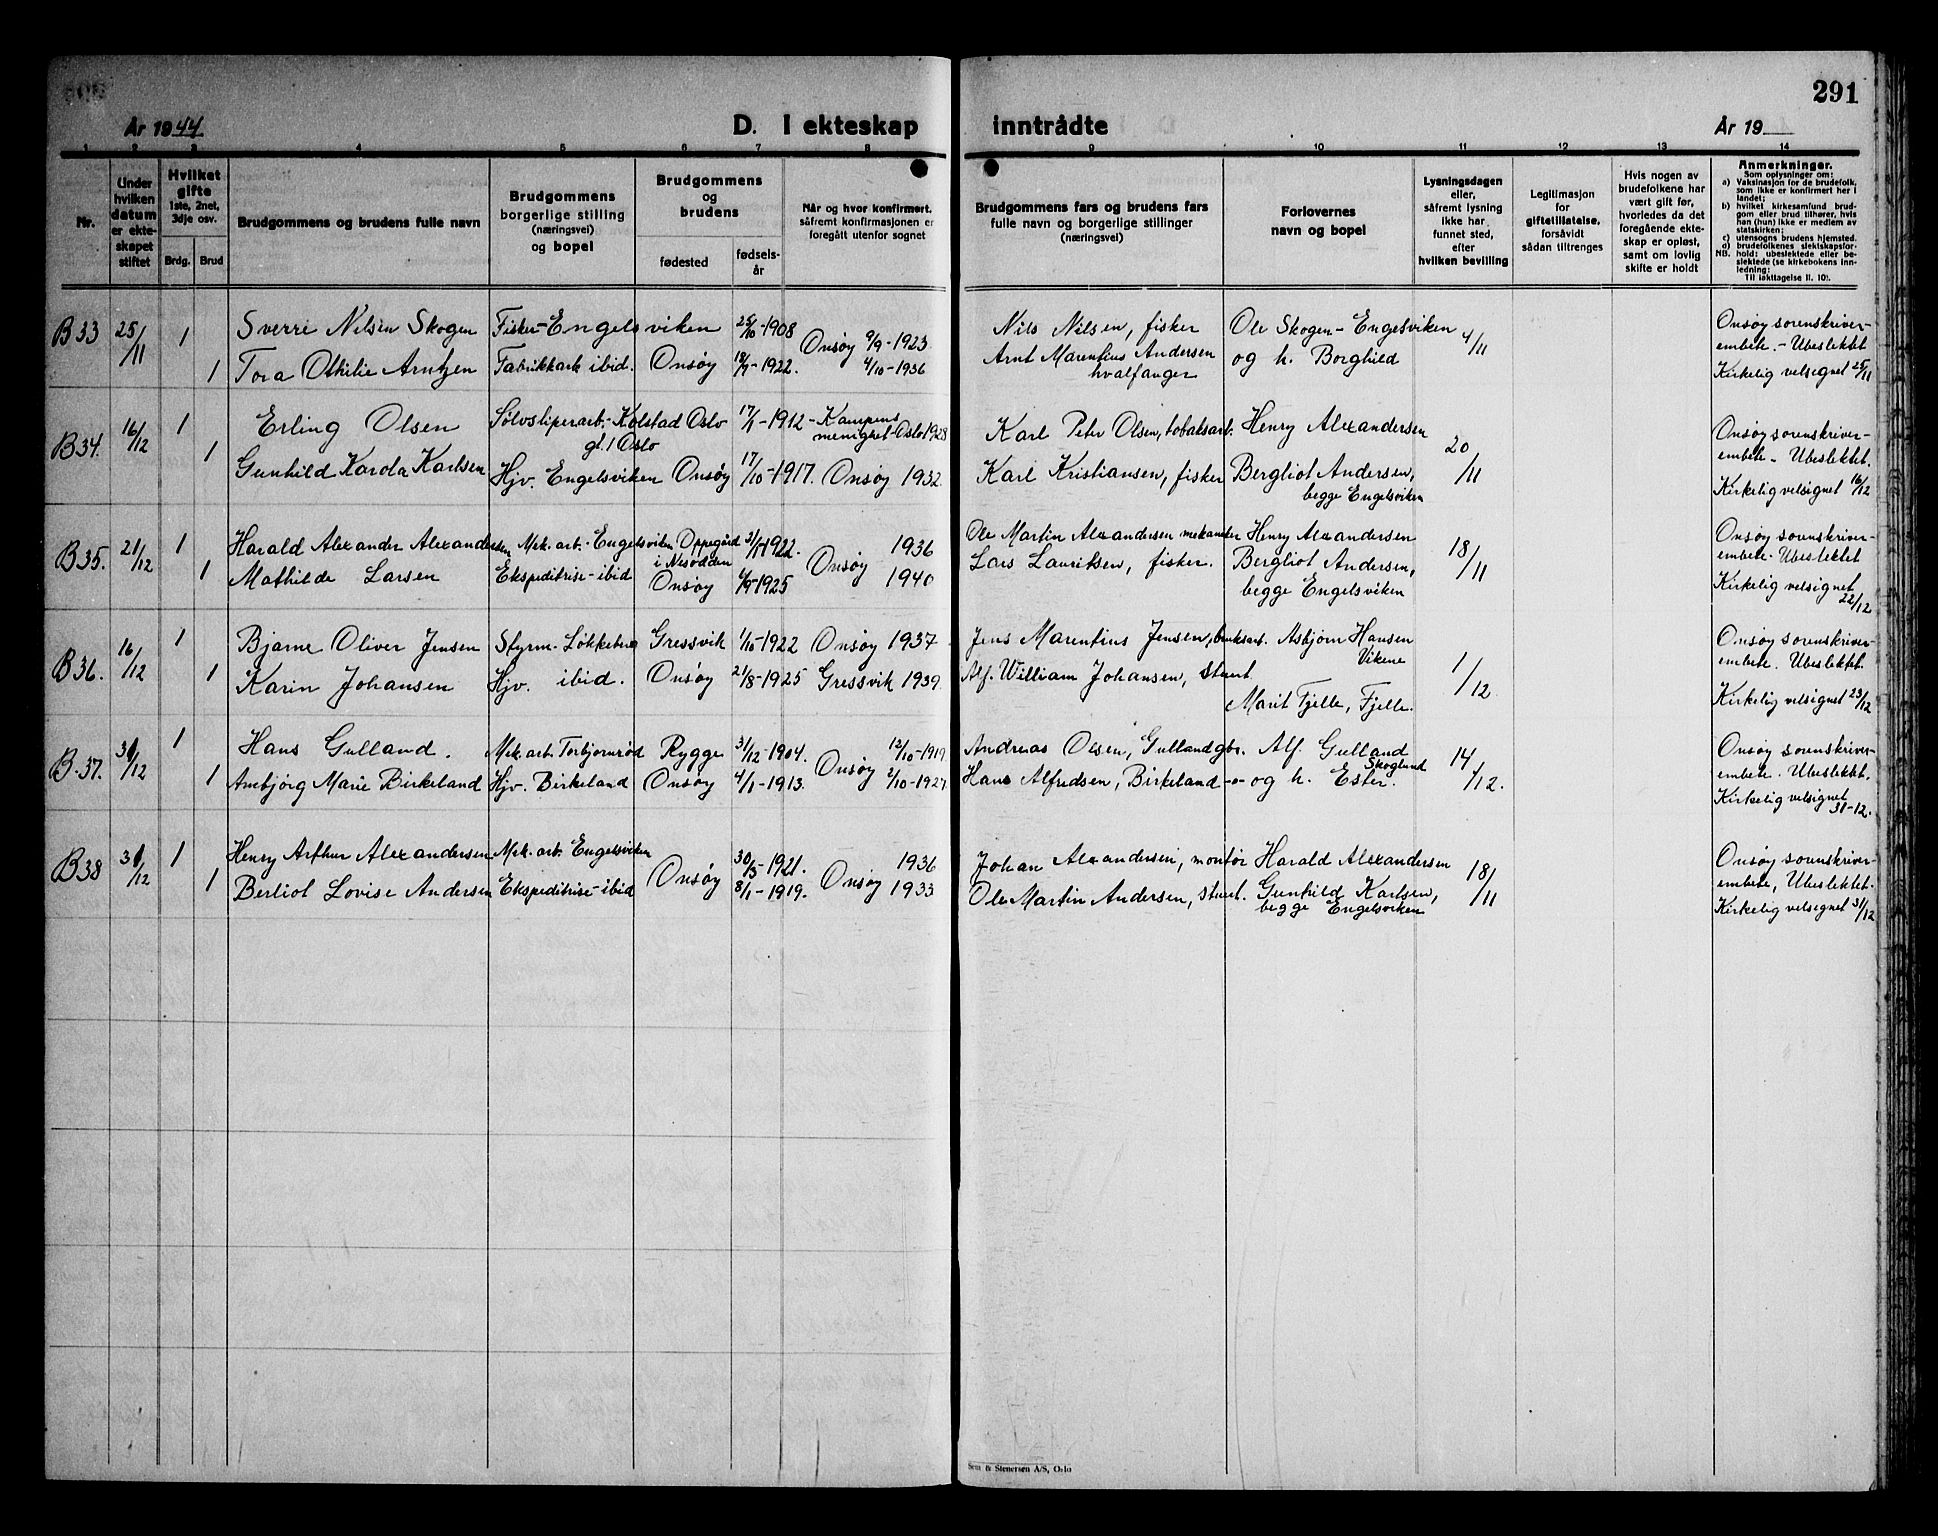 291
År 1944
D. I ekteskap inntrådte
År 19
1 2 3 4 5 6 7 8 9 10 11 12 13 14
Nr.
Under hvilken datum er ekteskapet stiftet
Hvilket gifte 1ste, 2net, 3dje osv.
Brdg. Brud
Brudgommens og brudens fulle navn
Brudgommens borgerlige stilling (næringsvei) og bopel
Brudgommens og brudens
fødested
fødselsår
Når og hvor konfirmert, såfremt konfirmasjonen er foregått utenfor sognet
Brudgommens fars og brudens fars fulle navn og borgerlige stillinger (næringsvei)
Forlovernes navn og bopel
Lysningsdagen eller, såfremt lysning ikke har funnet sted, efter hvilken bevilling
Legitimasjon for giftetillatelse, forsåvidt sådan tiltrenges
Hvis nogen av brudefolkene har vært gift før, hvorledes da det foregående ekteskap er opløst, samt om lovlig skifte er holdt
Anmerkninger.
Som oplysninger om:
a) Vaksinasjon for de brudefolk, som ikke er konfirmert her i landet;
b) hvilket kirkesamfund brudgom eller brud tilhører, hvis han (hun) ikke er medlem av statskirken;
c) utensogns brudens hjemsted.
d) brudefolkenes slektskapsforhold: ubeslektede eller beslektede (se kirkebokens innledning;
NB. Til iakttagelse II. 10).
B33 25/11 1 Sverre Nilsen Skogen Fisker-Engelsviken 25/10-1908 Onsøy 9/9-1923 Nils Nilsen, fisker Ole Skogen-Engelsviken 4/11 Onsøy sorenskriver-
1 Tora Othilie Arntzen Fabrikkarb ibid. Onsøy 1922. 4/10-1936 Arnt Marentius Andersen og h. Borghild embete.- Ubeslektet
hvalfanger Kirkelig velsignet 25/11
B34. 16/12 1 Erling Olsen Sølvsliperarb.-Kolstad Oslo 17/1-1912- Kampens Karl Peter Olsen, tobaksarb. Henry Alexandersen 20/11 Onsøy sorenskriver-
gt. 1 Oslo menighet-Oslo 1928 embete - Ubeslektet.
1 Gunhild Karola Karlsen Hjv. Engelsviken Onsøy 17/10-1917. Onsøy 1932. Karl Kristiansen, fisker Bergliot Andersen, Kirkelig velsignet 16/12
begge Engelsviken
B35. 21/12 1 Harald Alexander Alexandersen Mek. arb.-Engelsviken Oppegård 1922. 1936 Ole Martin Alexandersen Henry Alexandersen 18/11 Onsøy sorenskriver-
i Nesodden Onsøy embete. Ubeslektet
1 Mathilde Larsen Ekspeditrise-ibid Onsøy 1925 1940 Lars Lauritsen, fisker. Bergliot Andersen, Kirkelig velsignet
begge Engelsviken 22/12
B36. 16/12 1 Bjarne Oliver Jensen Styrm. Løkkebue Gressvik 1/10-1922 Onsøy 1937 Jens Marentius Jensen, bruksarb. Asbjørn Hansen 1/12 Onsøy sorenskriver-
Vikene embete. Ubeslektet.
1 Karin Johansen Hjv. ibid. Onsøy 21/8-1925 Gressvik 1939. Alf. William Johansen, stuert Marit Fjelle, Fjelle. Kirkelig velsignet 23/12
B.37. 31/12 1 Hans Gulland. Mek. arb. Torbjørnrød Rygge 31/12-1904. 12/10-1919 Andreas Olsen, Gulland gbr. Alf. Gulland 14/12. Onsøy sorenskriver-
Onsøy Skoglund embete. Ubeslektet.
1 Ambjørg Marie Birkeland Hjv. Birkeland Onsøy 4/1-1913. 2/10-1927 Hans Alfredsen, Birkeland -o- og h. Ester. Kirkelig velsignet
31-12.
B38 31/12 1 Henry Arthur Alexandersen Mek. arb. Engelsviken 30/5-1921. 1936 Johan Alexandersen, montør Harald Alexandersen 18/11 Onsøy sorenskriver-
Onsøy Onsøy embete, Ubeslektet.
1 Berliot Lovise Andersen Ekspeditrise-ibid 8/1-1919. 1933 Ole Martin Andersen, stuert. Gunhild Karlsen, Kirkelig velsignet 31/12
begge Engelsviken
Sem & Stenersen A/S, Oslo